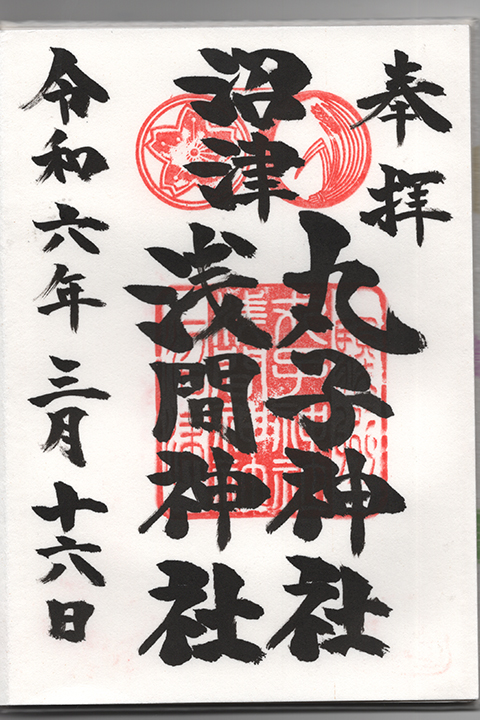 奉拝
沼津
丸子神社
浅間神社
令和六年三月十六日